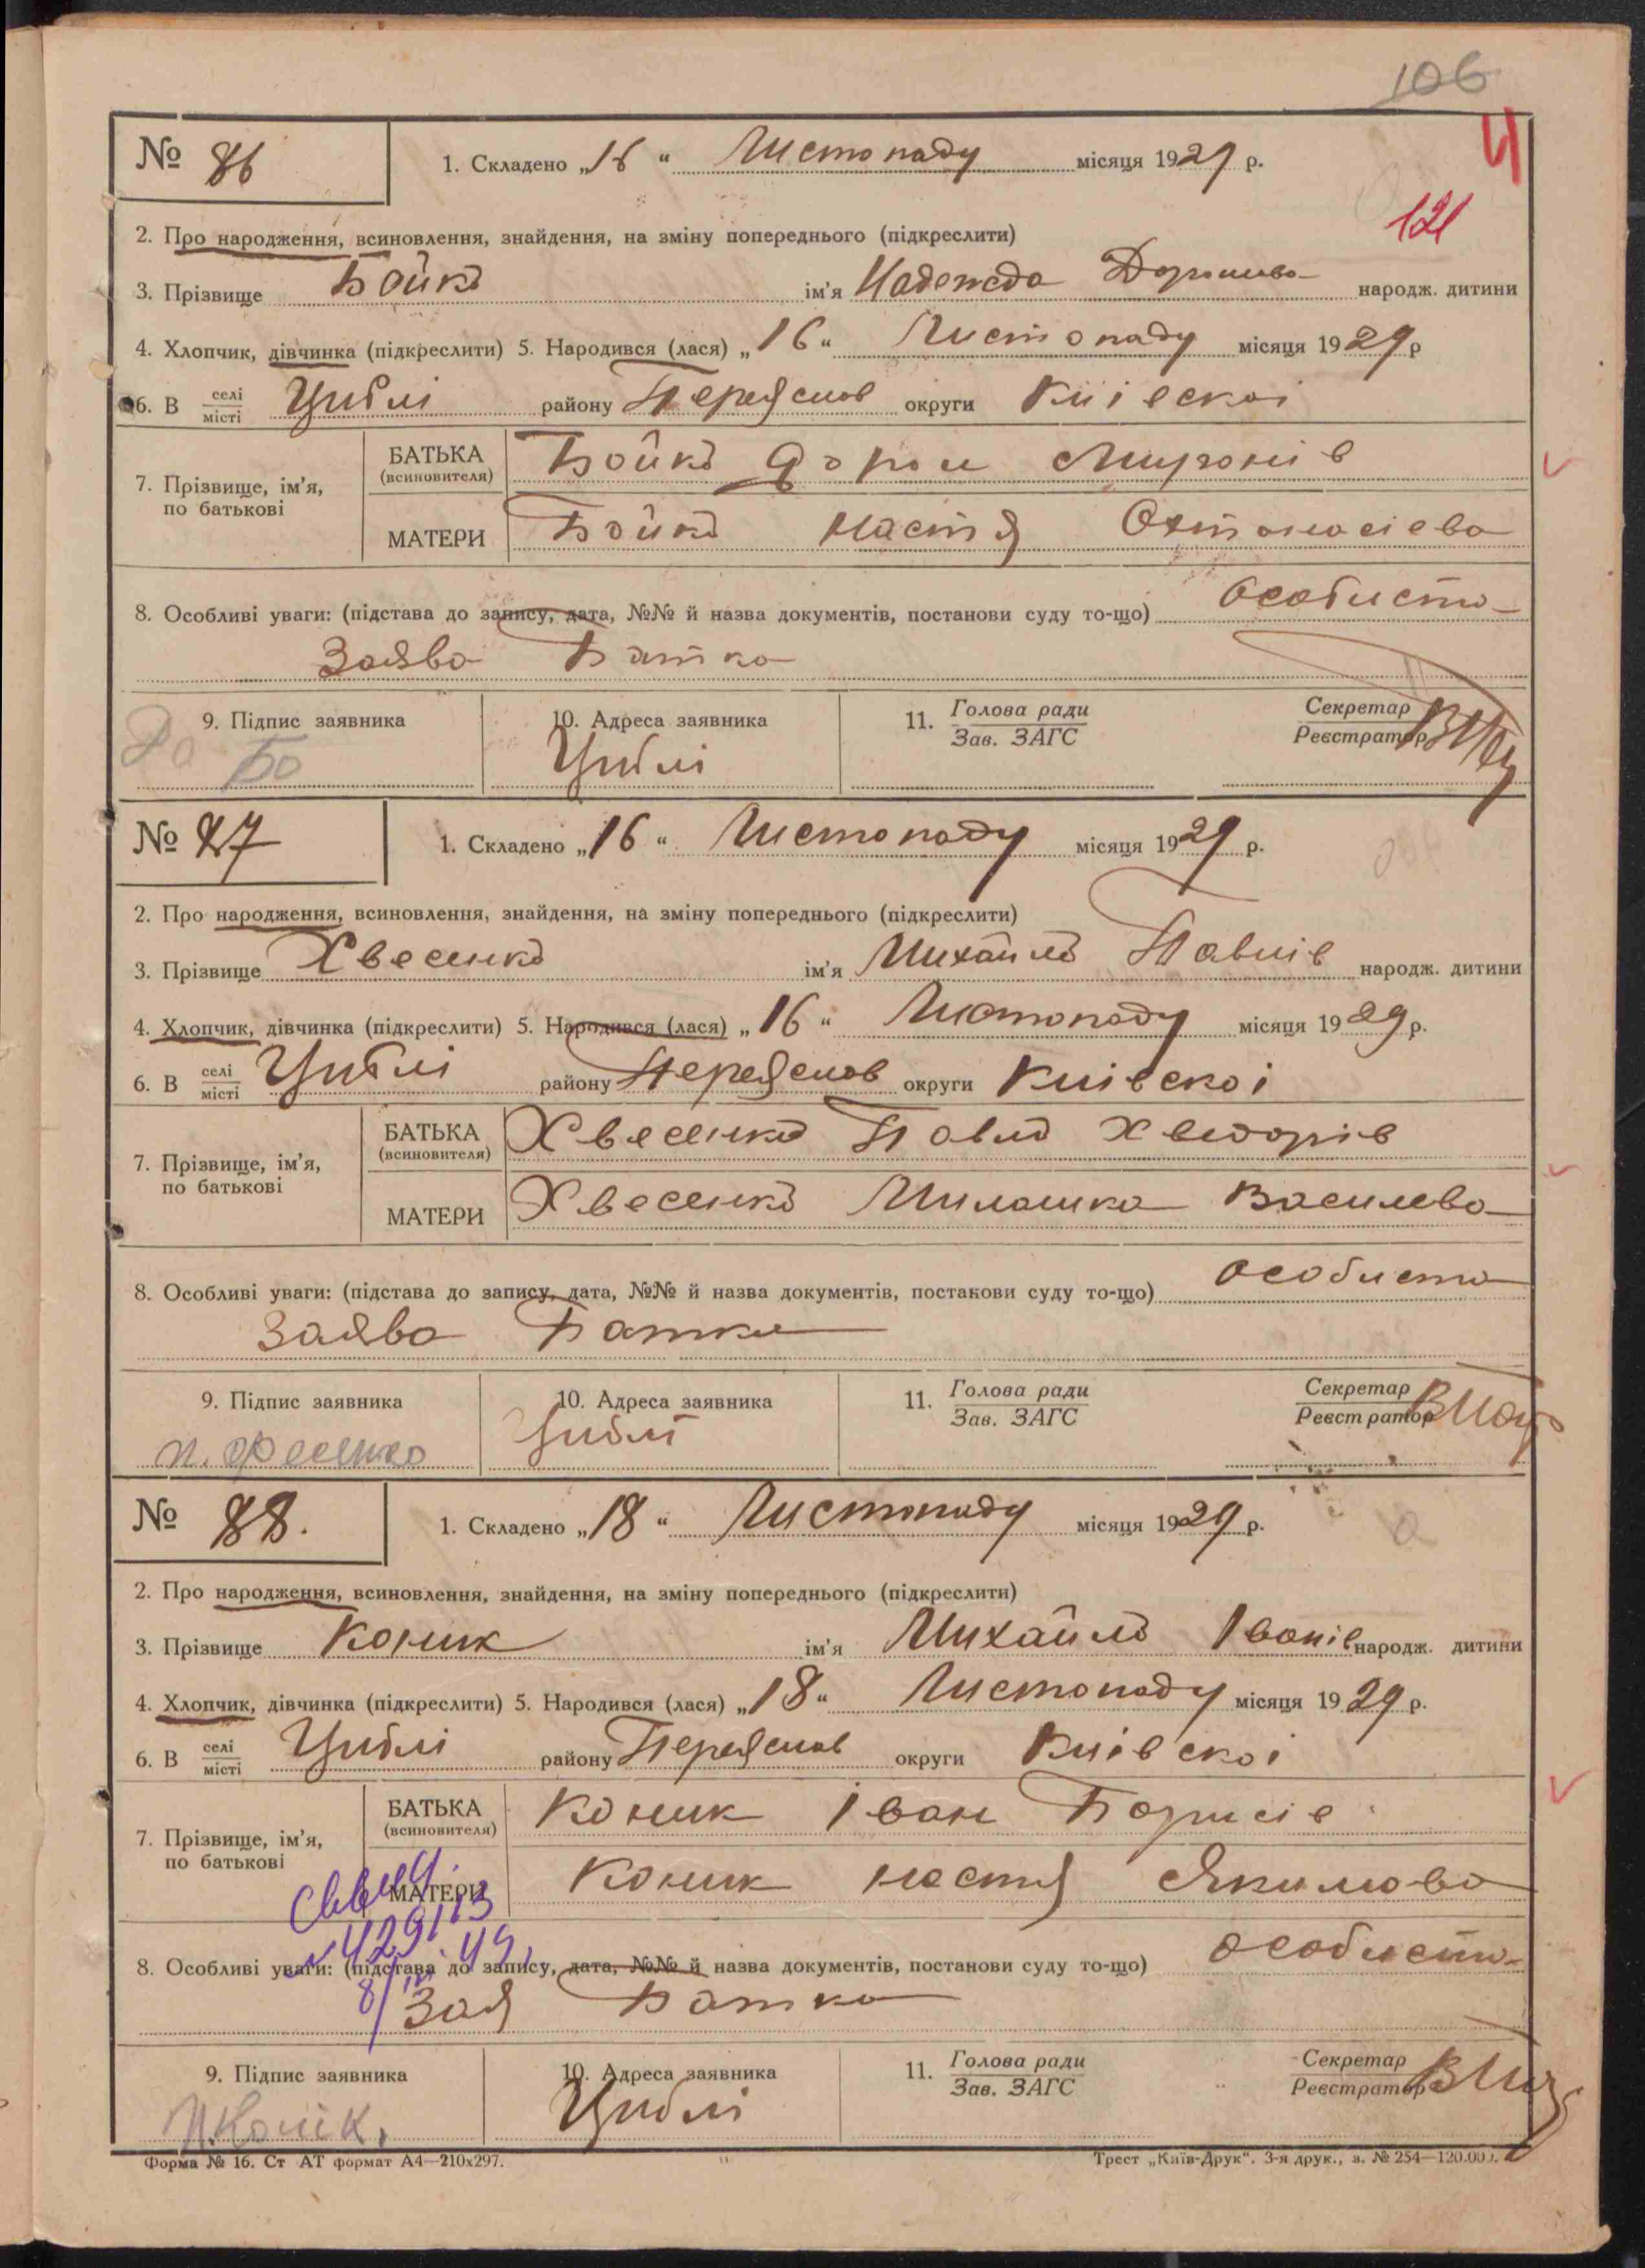 106
И
№ 86
1. Складено „16“ Листопаду місяця 1929 р.
121
2. Про народження, всиновлення, знайдення, на зміну попереднього (підкреслити)
3. Прізвище Бойко ім'я Надежда народж. дитини
4. Хлопчик, дівчинка (підкреслити) 5. Народився (лася) „16“ Листопаду місяця 1929 р
6. В селі місті Циблі району Переяслов округи Київскоі
7. Прізвище, ім'я, по батькові
БАТЬКА (всиновителя) Бойко Дорош Миронів
МАТЕРИ Бойко Настя
8. Особливі уваги: (підстава до запису, дата, №№ й назва документів, постанови суду то-що) особиста
Заява Батка
9. Підпис заявника 10. Адреса заявника 11. Голова ради Зав. ЗАГС Секретар Реєстратор
До Бо Циблі
№ 87
1. Складено „16“ Листопаду місяця 1929 р.
2. Про народження, всиновлення, знайдення, на зміну попереднього (підкреслити)
3. Прізвище Хвесенко ім'я Михайло Павлів народж. дитини
4. Хлопчик, дівчинка (підкреслити) 5. Народився (лася) „16“ Листопаду місяця 1929 р.
6. В селі місті Циблі району Переяслов округи Київскоі
7. Прізвище, ім'я, по батькові
БАТЬКА (всиновителя) Хвесенко Павло Хведорів
МАТЕРИ Хвесенко Милашка Василева
8. Особливі уваги: (підстава до запису, дата, №№ й назва документів, постанови суду то-що) особиста
Заява Батка
9. Підпис заявника 10. Адреса заявника 11. Голова ради Зав. ЗАГС Секретар Реєстратор
п. Фесенко Циблі
№ 88.
1. Складено „18“ Листопаду місяця 1929 р.
2. Про народження, всиновлення, знайдення, на зміну попереднього (підкреслити)
3. Прізвище Коник ім'я Михайло Іванів народж. дитини
4. Хлопчик, дівчинка (підкреслити) 5. Народився (лася) „18“ Листопаду місяця 1929 р.
6. В селі місті Циблі району Переяслов округи Київскоі
7. Прізвище, ім'я, по батькові
БАТЬКА (всиновителя) Коник Іван Борисів
МАТЕРИ Коник Настя Якимова
8. Особливі уваги: (підстава до запису, дата, №№ й назва документів, постанови суду то-що) особиста
Зая Батка
9. Підпис заявника 10. Адреса заявника 11. Голова ради Зав. ЗАГС Секретар Реєстратор
Циблі
Форма № 16. Ст АТ формат А4—210х297. Трест „Київ-Друк“. 3-я друк., з. № 254—120.000.